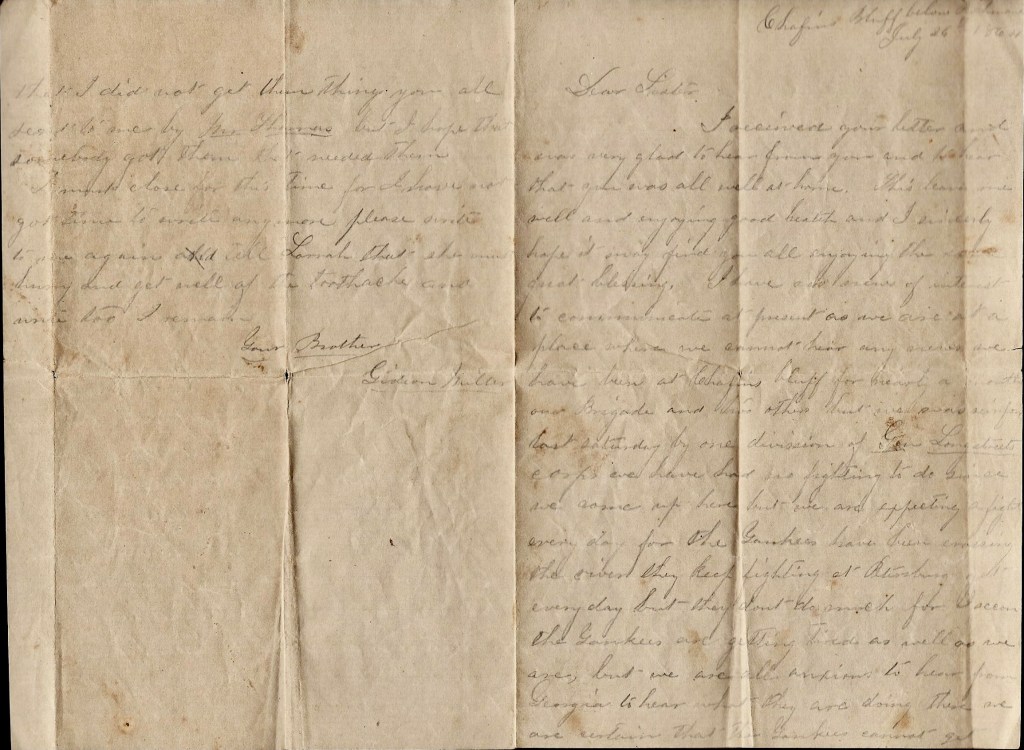 Chafins Bluff below
July 26 1864
Dear Sister
I received your letter and
was very glad to hear from you and to hear
that you was all well at home. This leaves me
well and enjoying good health and I sincerly
hope it may find you all enjoying the same
great blessing. I have no news of interest
to communicate at present as we are at a
place where we cannot hear any news we
have been at Chafins bluff for nearly a month
our Brigade and two others but we was
last saturday by one division of Gen Longstreets
corps we have had no fighting to do since
we come up here but we are expecting a fight
every day for the Yankees have been crossing
the river they keep fighting at Petersburg
everyday but they dont do much for I recon
the Yankees are getting tired as well as we
are, but we are all anxious to hear from
Georgia to hear what they are doing there we
are certain that the Yankees cannot get
that I did not get them things you all
sent to me by Mr Thomas but I hope that
somebody gott them that needed them
I must close for this time for I have not
got time to write any more please write
to me again and tell Sarrah that she must
hurry and get well of the toothache and
write too I remain
Your Brother
Gideon Miller